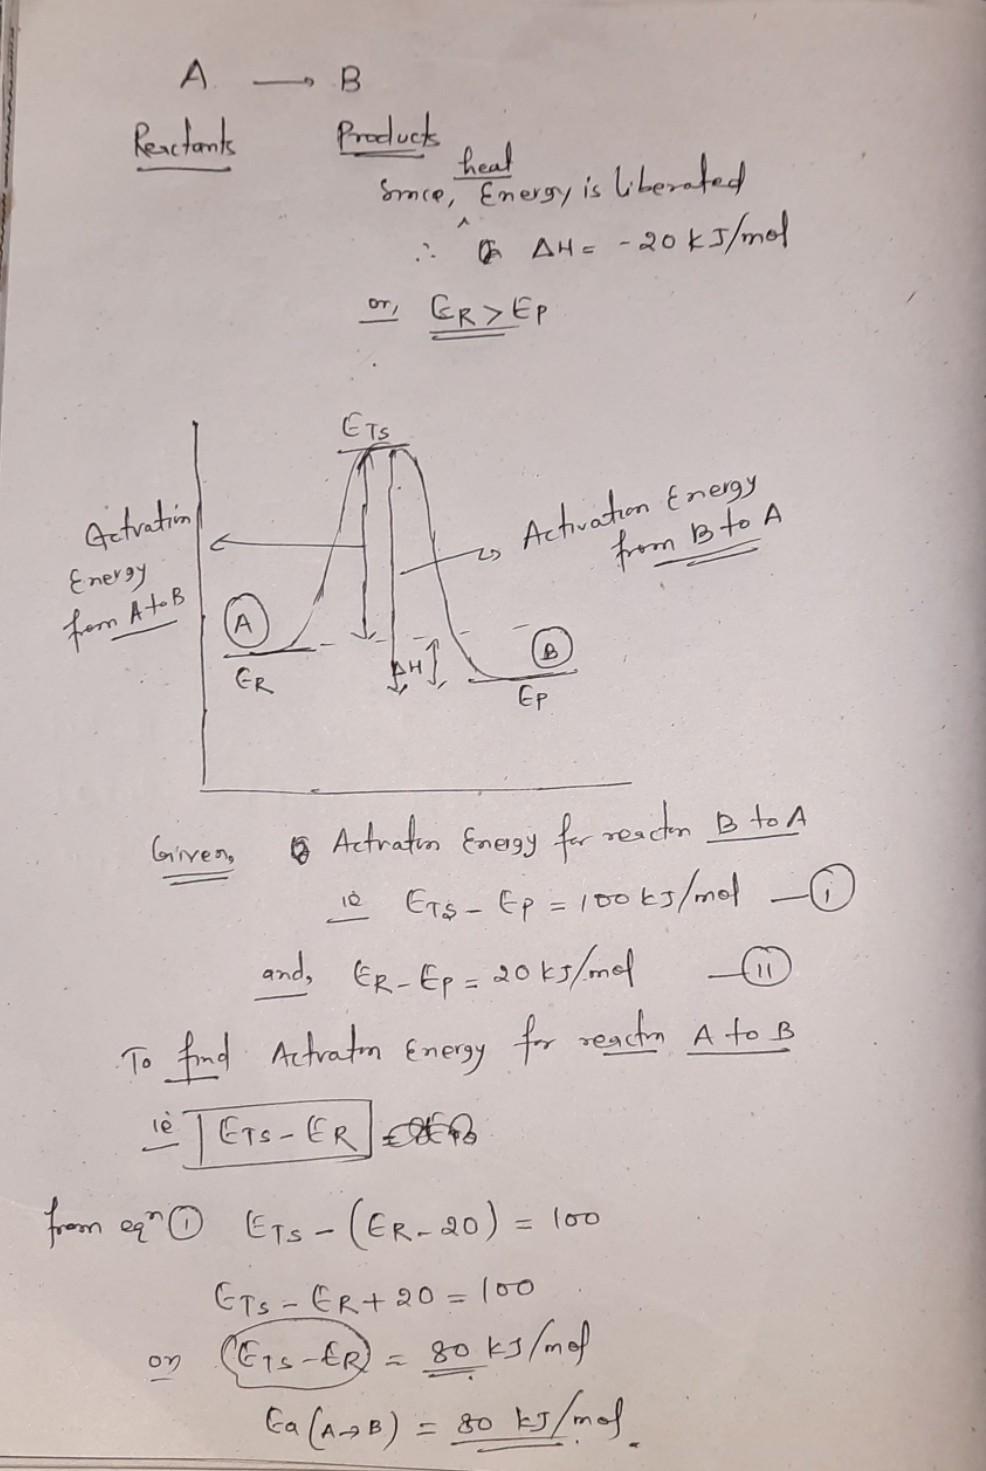 A → B
Reactants Products
Since, heat Energy is liberated
∴ ΔH = -20 kJ/mol
or, ER > EP
ETS
Activation Energy from A to B
Activation Energy
from B to A
A
ER
ΔH
B
EP
Given, Actvaton Energy for reacton B to A
ie ETS - EP = 100 kJ/mol — (i)
and, ER - EP = 20 kJ/mol — (ii)
To find Actvaton Energy for reactn A to B
ie ETS - ER
from eqn (i) ETS - (ER - 20) = 100
ETS - ER + 20 = 100
or (ETS - ER) = 80 kJ/mol
Ea (A→B) = 80 kJ/mol.